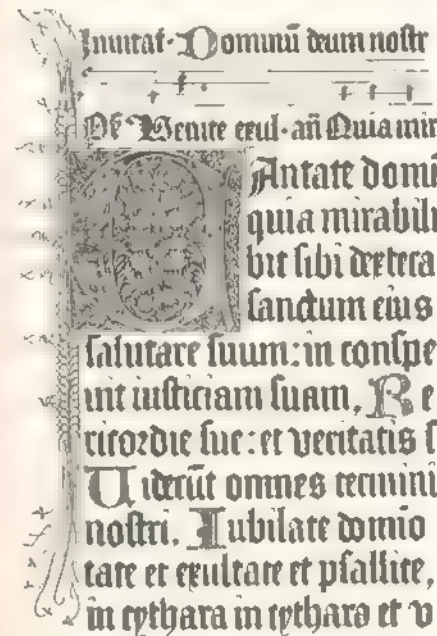 Inuitaꝶ· Dominū deum noſtr
Pſ̄ Venite exul· añ Quia mir
CAntate domi
quia mirabili
bit ſibi dextera
ſanctum eius
ſalutare ſuum: in conſpe
uit iuſticiam ſuam. Re
ricordie ſue: et veritatis ſ
Uiderūt omnes termini
noſtri. Iubilate domio
tate et exultate et pſallite.
in cythara in cythara et v